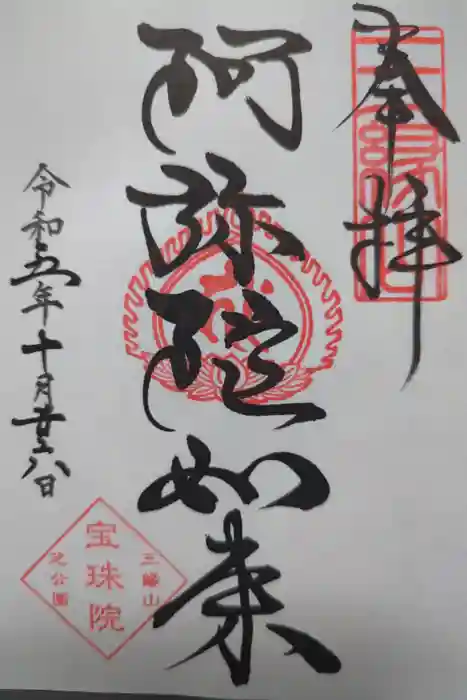 奉拝
阿弥陀如来
令和五年十月廿八日
三峰山
宝珠院
芝公園